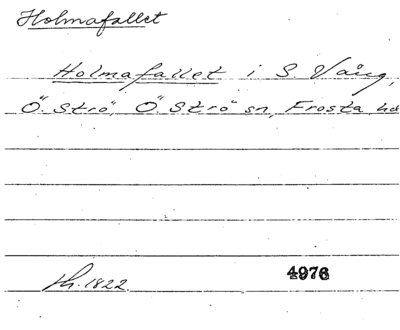 Holmafallet
Holmafallet i S. Vång,
Ö. Strö, Ö. Strö sn, Frosta hd
Lh. 1822.
4976